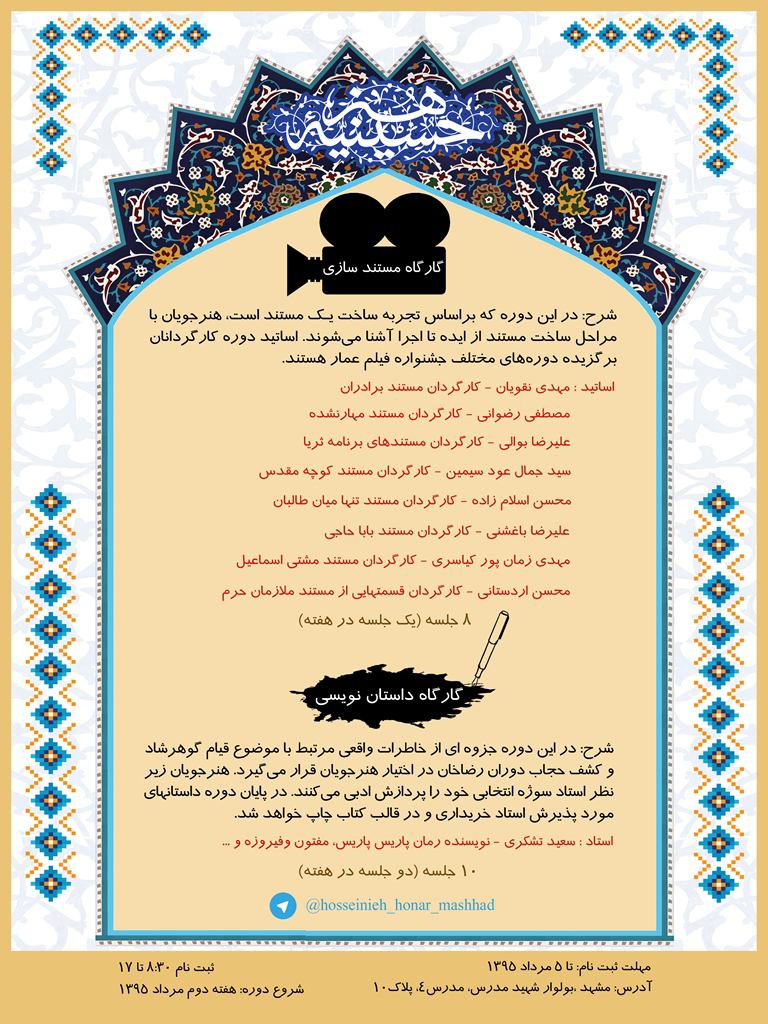 حسینیهٔ هنر
گارگاه مستند سازی
شرح: در این دوره که براساس تجربه ساخت یک مستند است، هنرجویان با
مراحل ساخت مستند از ایده تا اجرا آشنا می‌شوند. اساتید دوره کارگردانان
برگزیده دوره‌های مختلف جشنواره فیلم عمار هستند.
اساتید : مهدی نقویان - کارگردان مستند برادران
مصطفی رضوانی - کارگردان مستند مهارنشده
علیرضا بوالی - کارگردان مستندهای برنامه ثریا
سید جمال عود سیمین - کارگردان مستند کوچه مقدس
محسن اسلام زاده - کارگردان مستند تنها میان طالبان
علیرضا باغشنی - کارگردان مستند بابا حاجی
مهدی زمان پور کیاسری - کارگردان مستند مشتی اسماعیل
محسن اردستانی - کارگردان قسمتهایی از مستند ملازمان حرم
۸ جلسه (یک جلسه در هفته)
گارگاه داستان نویسی
شرح: در این دوره جزوه ای از خاطرات واقعی مرتبط با موضوع قیام گوهرشاد
و کشف حجاب دوران رضاخان در اختیار هنرجویان قرار می‌گیرد. هنرجویان زیر
نظر استاد سوژه انتخابی خود را پردازش ادبی می‌کنند. در پایان دوره داستانهای
مورد پذیرش استاد خریداری و در قالب کتاب چاپ خواهد شد.
استاد : سعید تشکری - نویسنده رمان پاریس پاریس، مفتون وفیروزه و ...
۱۰ جلسه (دو جلسه در هفته)
@hosseinieh_honar_mashhad
مهلت ثبت نام: تا ۵ مرداد ۱۳۹۵
ثبت نام ۸:۳۰ تا ۱۷
آدرس: مشهد ،بولوار شهید مدرس، مدرس٤، پلاک۱۰
شروع دوره: هفته دوم مرداد ۱۳۹۵